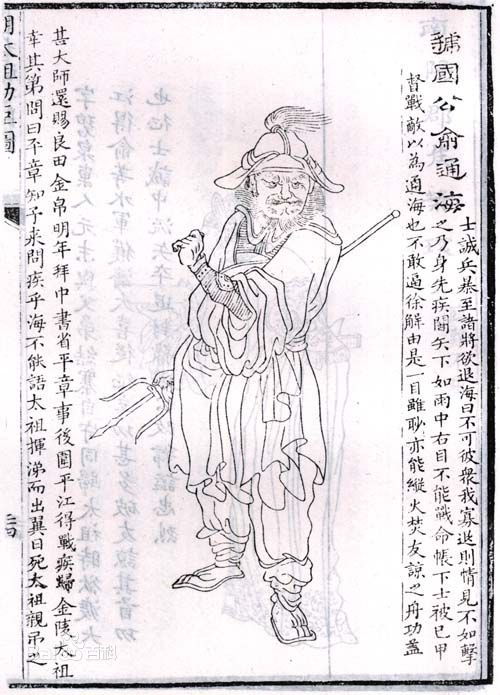 虢國公俞通海
士誠兵恭至諸將欲退海曰不可彼衆我寡退則情見不如擊
之乃身先疾鬪矢下如雨中右目不能戰命帳下士被己甲
督戰敵以為通海也不敢逼徐解由是一目雖眇亦能縱火焚友諒之舟功益
甚大師還賜良田金帛明年拜中書省平章事後圍平江得戰疾歸金陵太祖
幸其第問曰平章知予來問疾乎海不能語太祖揮涕而出翼日死太祖親弔之
明太祖功臣圖
百科